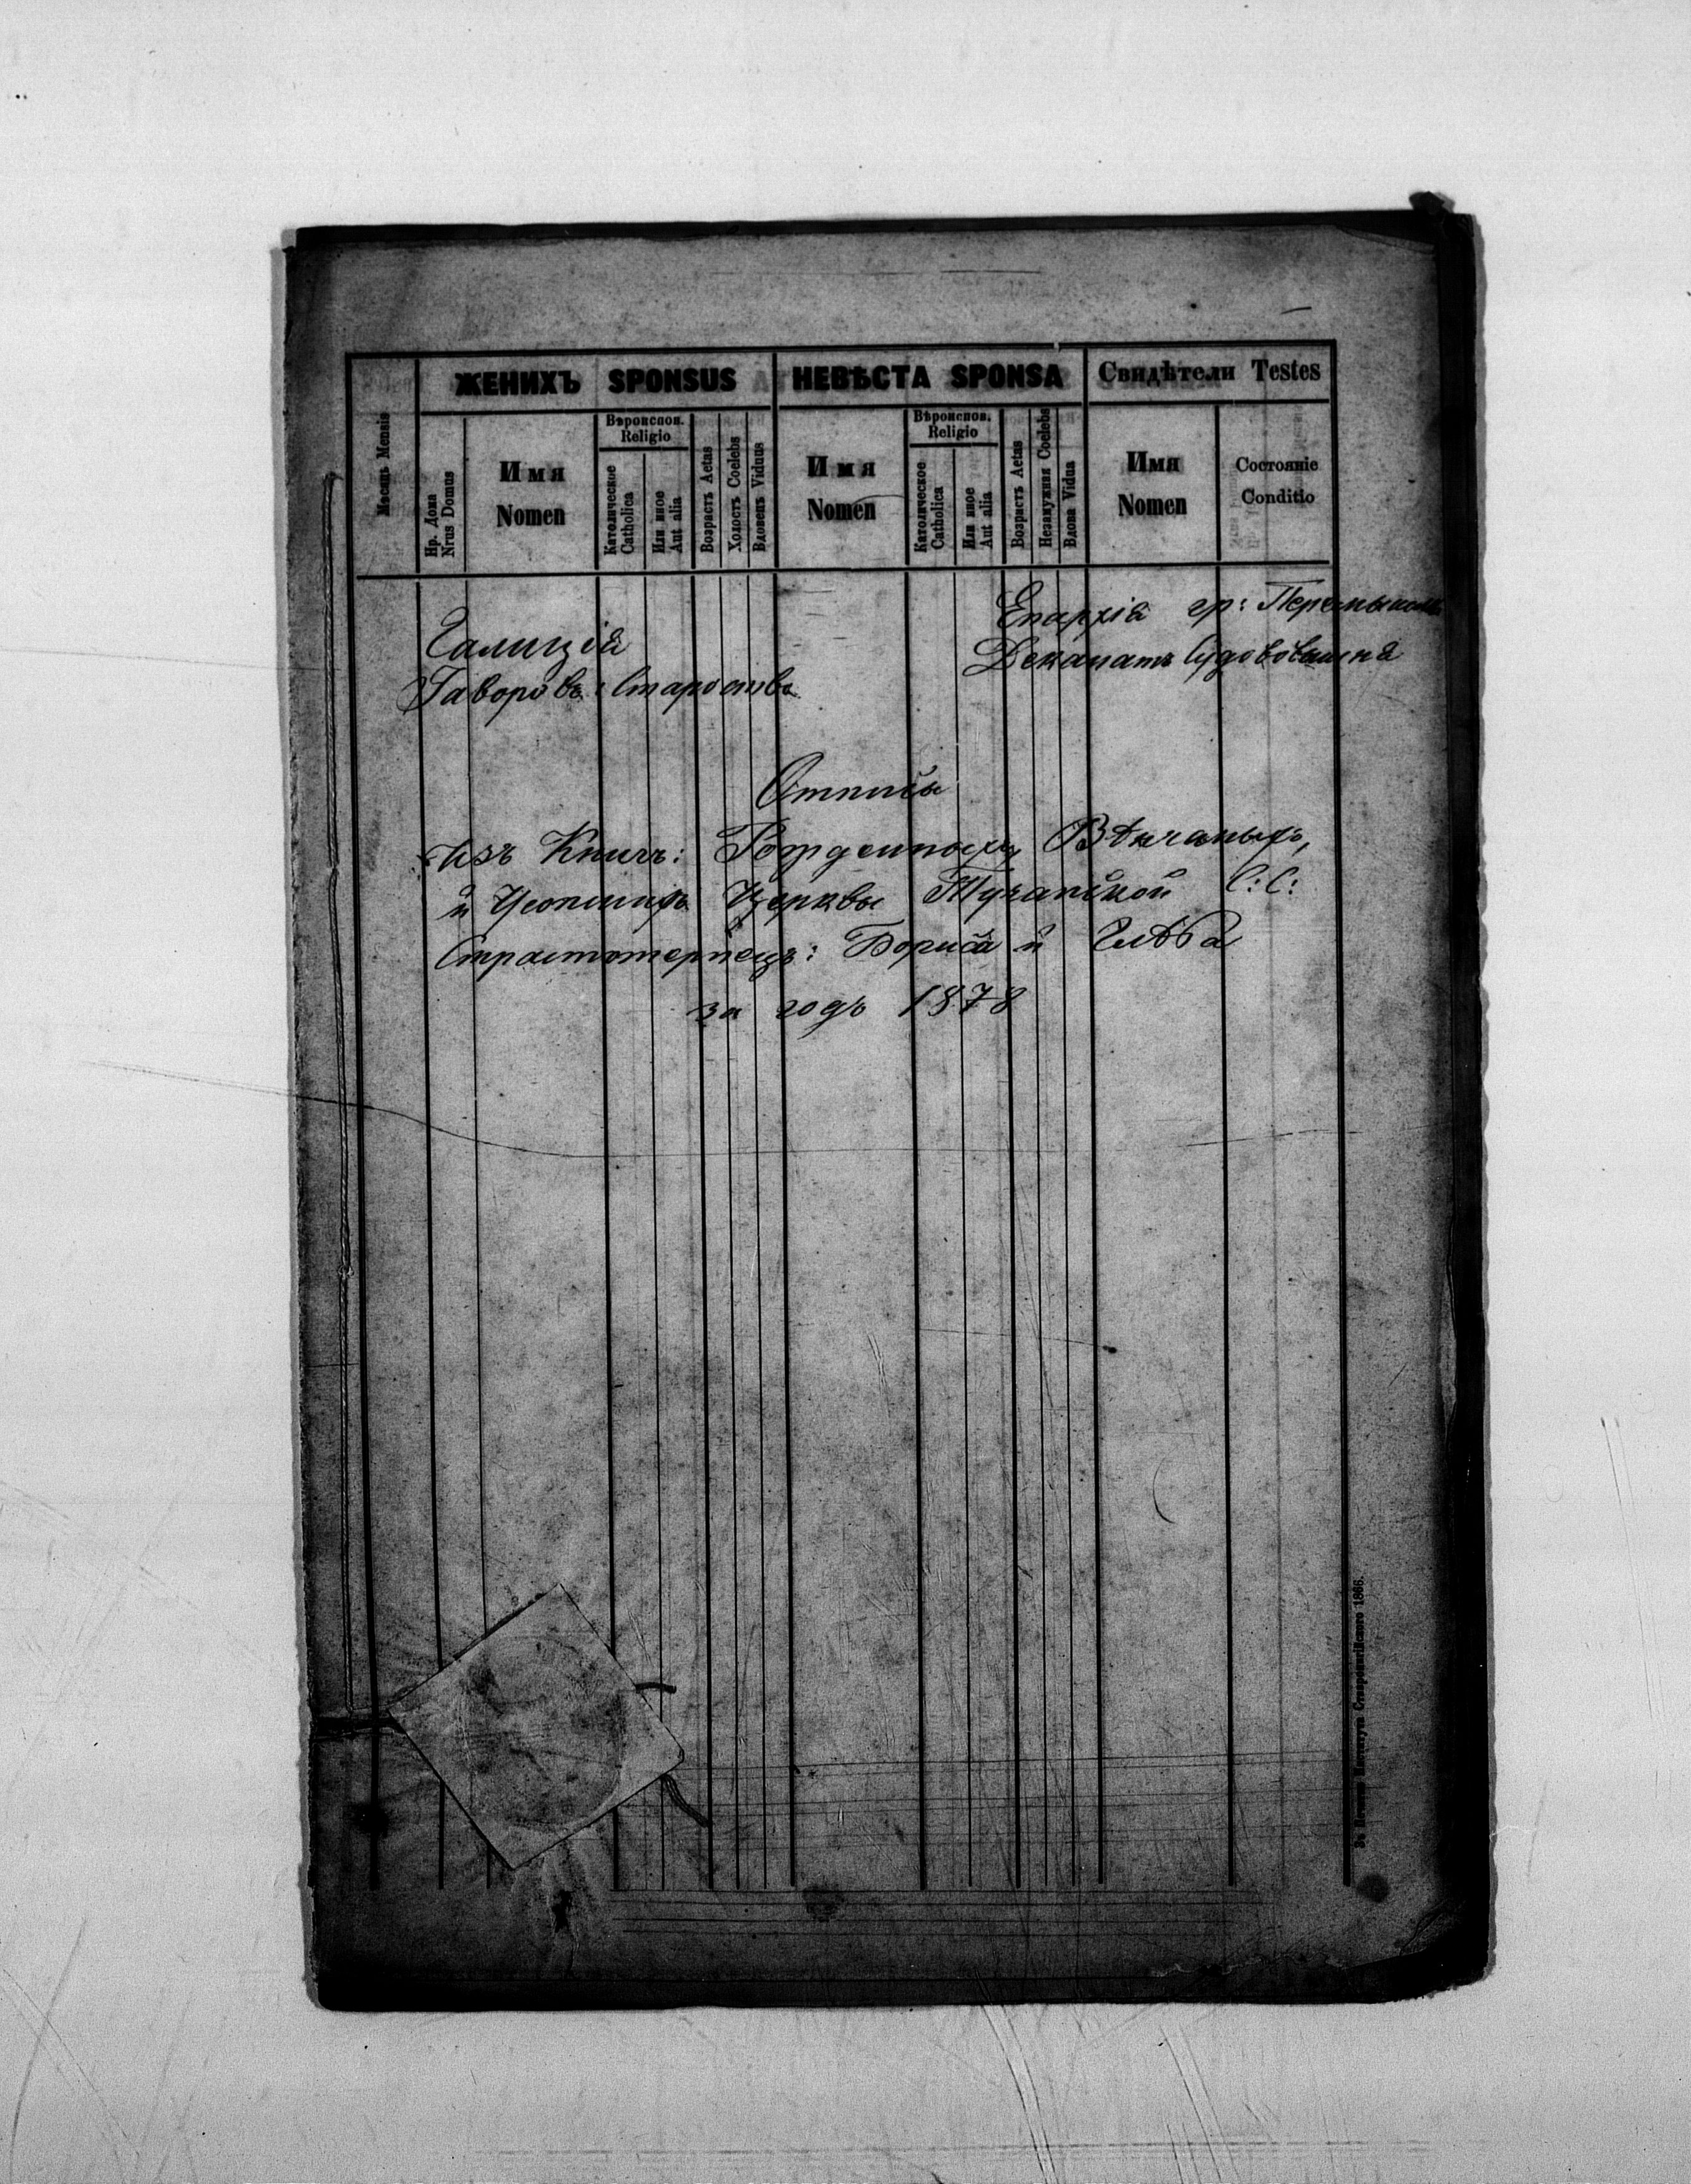 ЖЕНИХЪ SPONSUS НЕВѢСТА SPONSA Свидѣтели Testes
Мѣсяць Mensis
Нр. Дома
Nrus Domus
Имя
Nomen
Вѣроиспов.
Religio
Католическое
Catholica
Или иное
Aut alia
Возрастъ Aetas
Холостъ Coelebs
Вдовецъ Viduus
Имя
Nomen
Вѣроиспов.
Religio
Католическое
Catholica
Или иное
Aut alia
Возрастъ Aetas
Незамужная Coelebs
Вдова Vidua
Имя
Nomen
Состоянiе
Conditio
Епархія гр: Перемыш
Галиція
Деканатъ Судовѣ
Яворôвъ: Староство
Отписы
Изъ Книгъ: Рожденныхъ, Вѣнчаныхъ,
й Усопшихъ Церквы Тучапской С: С:
Страстотерпецъ: Бориса й Глѣба
за годъ 1878
Зъ Печатнѣ Института Ставропигійского 1866.